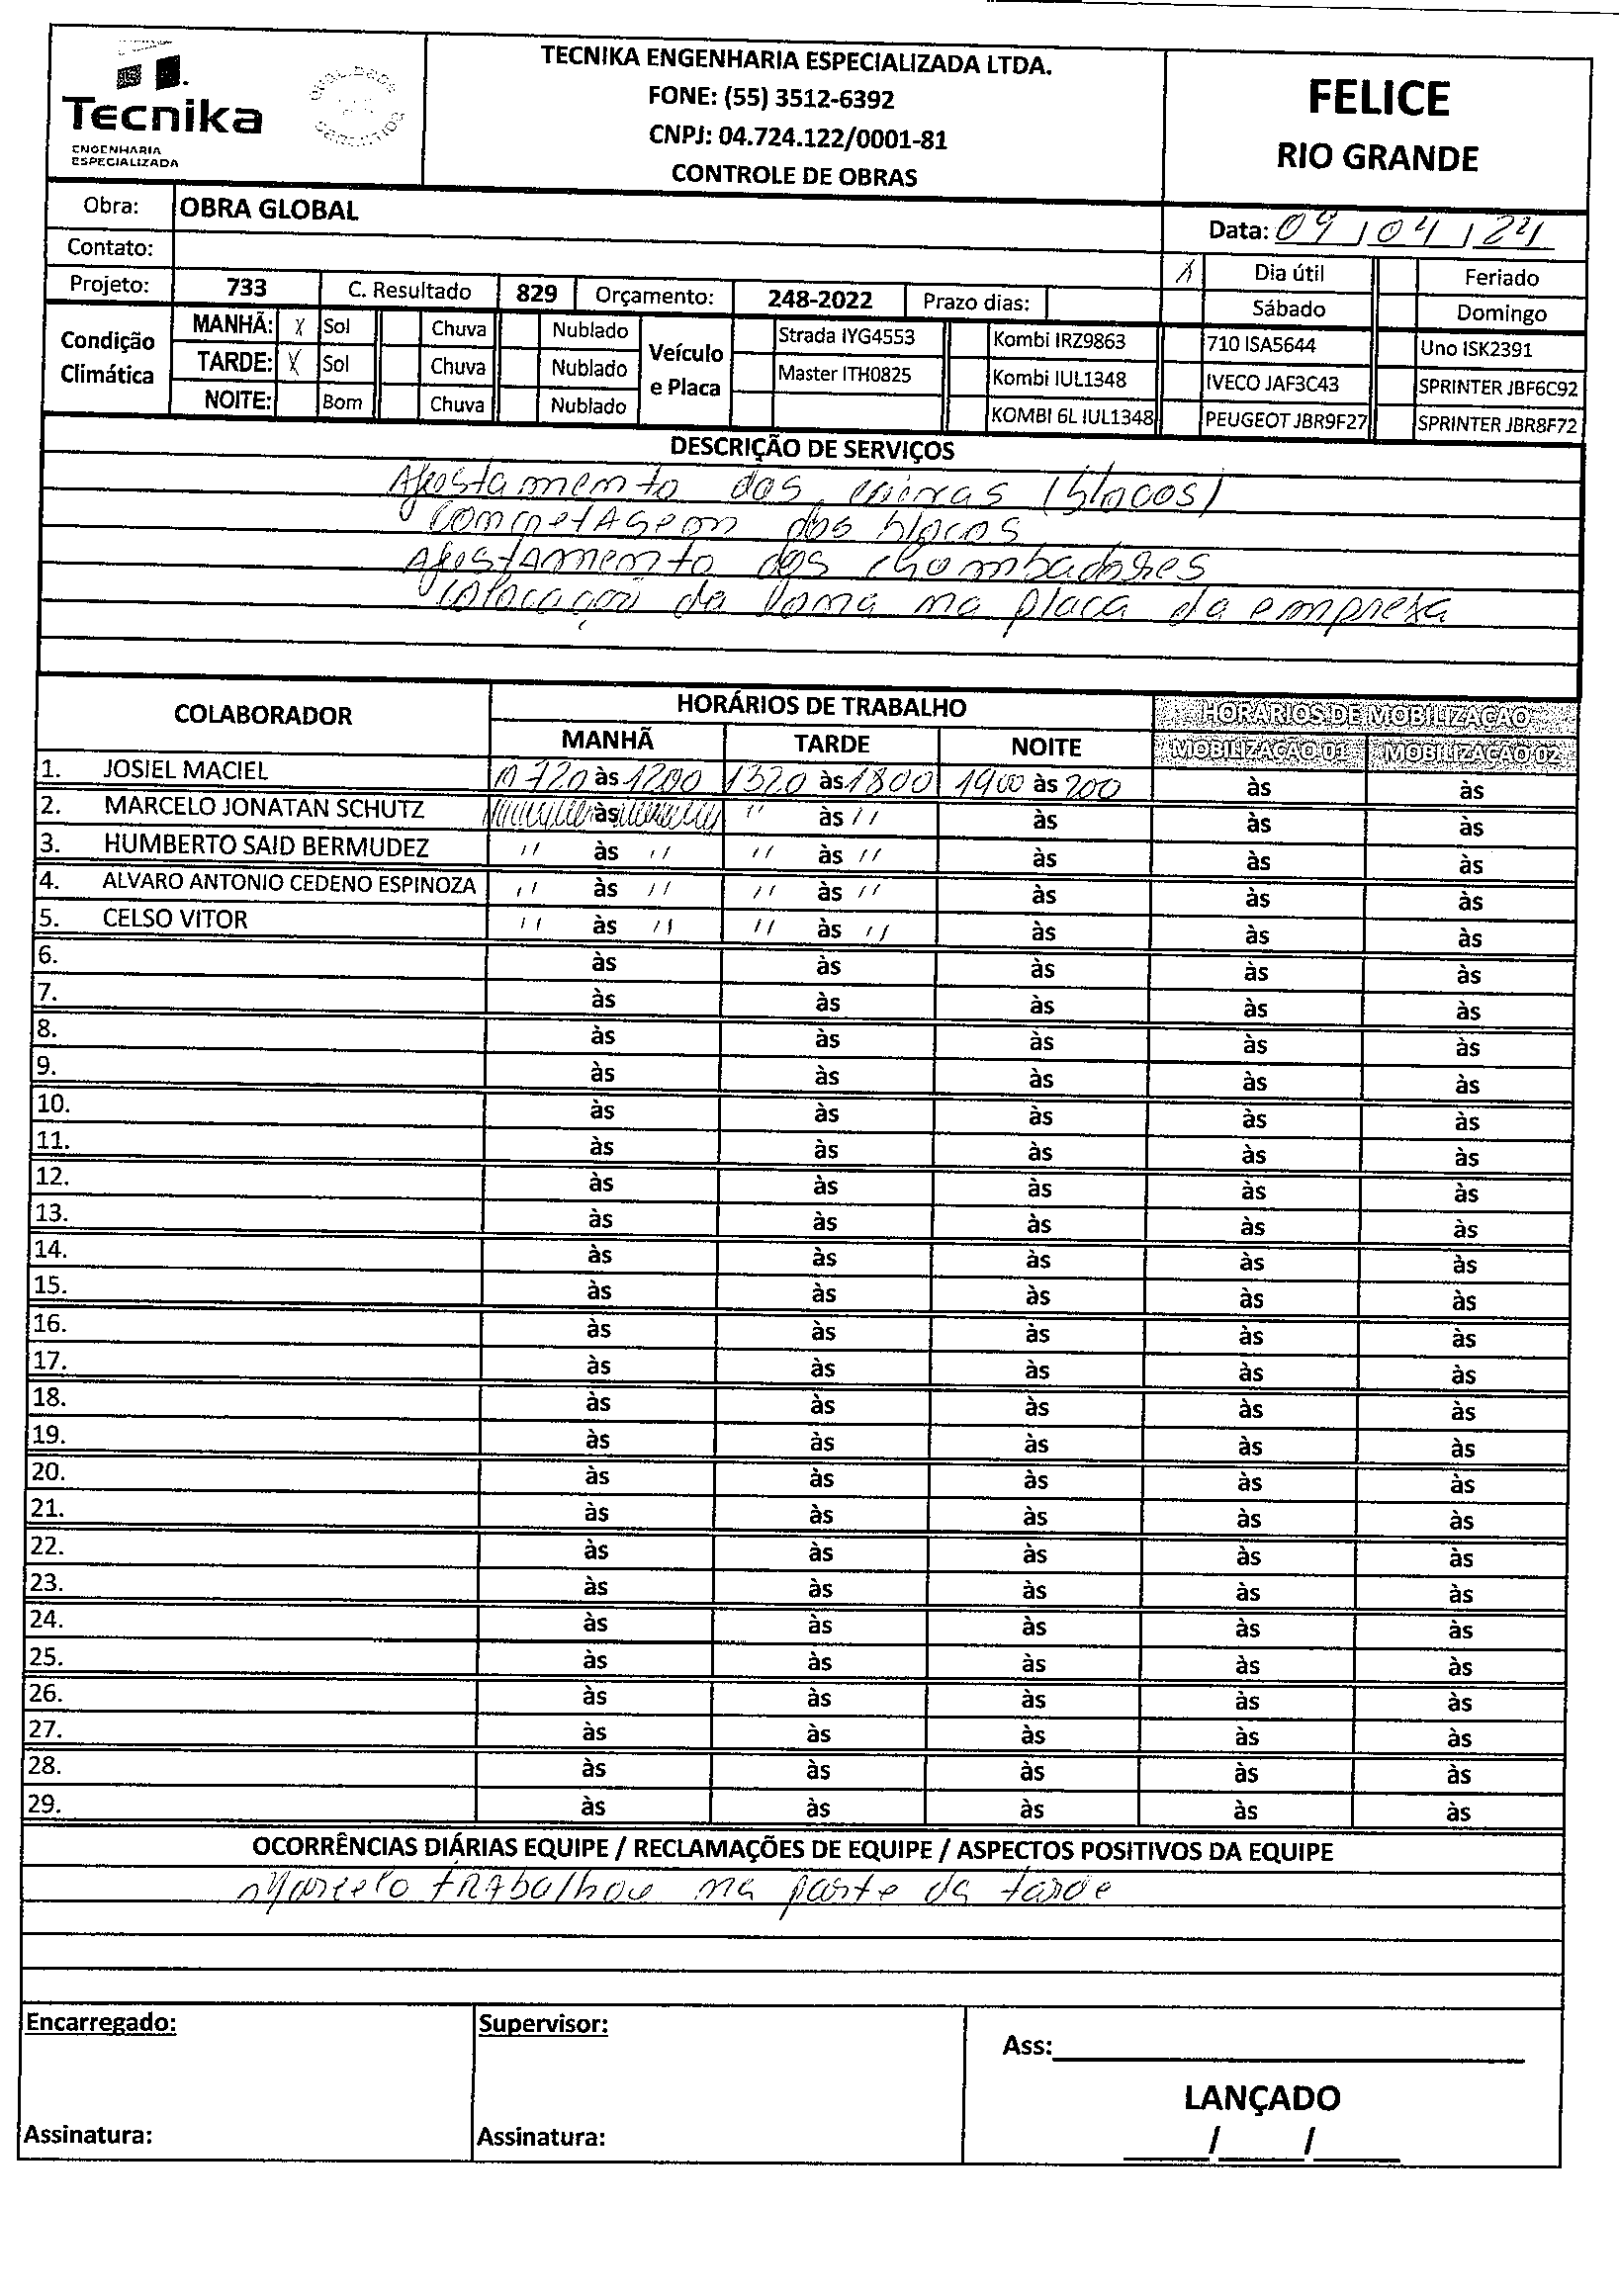 Tecnika
ENGENHARIA
ESPECIALIZADA
TECNIKA ENGENHARIA ESPECIALIZADA LTDA.
FONE: (55) 3512-6392
CNPJ: 04.724.122/0001-81
CONTROLE DE OBRAS
FELICE
RIO GRANDE
Obra: OBRA GLOBAL
Data: 09/04/24
Contato:
X Dia útil Feriado
Projeto: 733 C. Resultado 829 Orçamento: 248-2022 Prazo dias:
Sábado Domingo
Condição Climática
MANHÃ: X Sol Chuva Nublado
TARDE: X Sol Chuva Nublado
NOITE: Bom Chuva Nublado
Veículo e Placa
Strada IYG4553 Kombi IRZ9863 710 ISA5644 Uno ISK2391
Master ITH0825 Kombi IUL1348 IVECO JAF3C43 SPRINTER JBF6C92
KOMBI 6L IUL1348 PEUGEOT JBR9F27 SPRINTER JBR8F72
DESCRIÇÃO DE SERVIÇOS
das (blocos)
concretagem dos blocos
dos chombadores
colocação da lona na placa da empresa
COLABORADOR HORÁRIOS DE TRABALHO HORÁRIOS DE MOBILIZAÇÃO
MANHÃ TARDE NOITE MOBILIZAÇÃO 01 MOBILIZAÇÃO 02
1. JOSIEL MACIEL 720 às 1200 1320 às 1800 1900 às 200 às às
2. MARCELO JONATAN SCHUTZ às " às " às às às
3. HUMBERTO SAID BERMUDEZ " às " " às " às às às
4. ALVARO ANTONIO CEDENO ESPINOZA " às " " às " às às às
5. CELSO VITOR " às " " às " às às às
6. às às às às às
7. às às às às às
8. às às às às às
9. às às às às às
10. às às às às às
11. às às às às às
12. às às às às às
13. às às às às às
14. às às às às às
15. às às às às às
16. às às às às às
17. às às às às às
18. às às às às às
19. às às às às às
20. às às às às às
21. às às às às às
22. às às às às às
23. às às às às às
24. às às às às às
25. às às às às às
26. às às às às às
27. às às às às às
28. às às às às às
29. às às às às às
OCORRÊNCIAS DIÁRIAS EQUIPE / RECLAMAÇÕES DE EQUIPE / ASPECTOS POSITIVOS DA EQUIPE
Marcelo trabalhou na parte da tarde
Encarregado: Supervisor:
Ass:
LANÇADO
Assinatura: Assinatura:
/ /